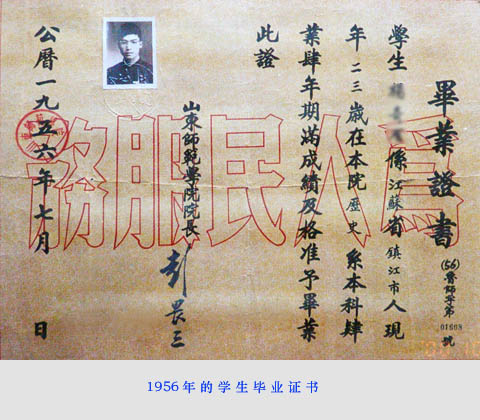 畢業證書
(56)魯師字第
號
學生 係江蘇省鎮江市人現
年二三歲在本院歷史系本科肆
業肆年期滿成績及格准予畢業
此證
山東師範學院院長 彭畏三
公曆一九五六年七月 日
爲人民服務
1956年的学生毕业证书